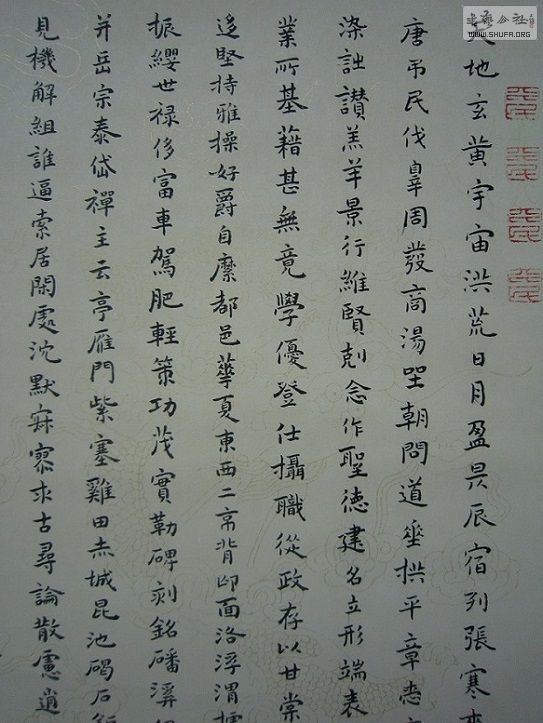 天地玄黃宇宙洪荒日月盈昃辰宿列張寒來
唐弔民伐辠周發商湯坐朝問道垂拱平章
染詩讚羔羊景行維賢剋念作聖德建名立形端表
業所基藉甚無竟學優登仕攝職從政存以甘棠
堅持雅操好爵自縻都邑華夏東西二京背邙面洛浮渭據
振纓世祿侈富車駕肥輕策功茂實勒碑刻銘磻溪
并岳宗泰岱禪主云亭雁門紫塞雞田赤城昆池碣石
見機解組誰逼索居閑處沈默寂寥求古尋論散慮逍
書法公社
WWW.SHUFA.ORG